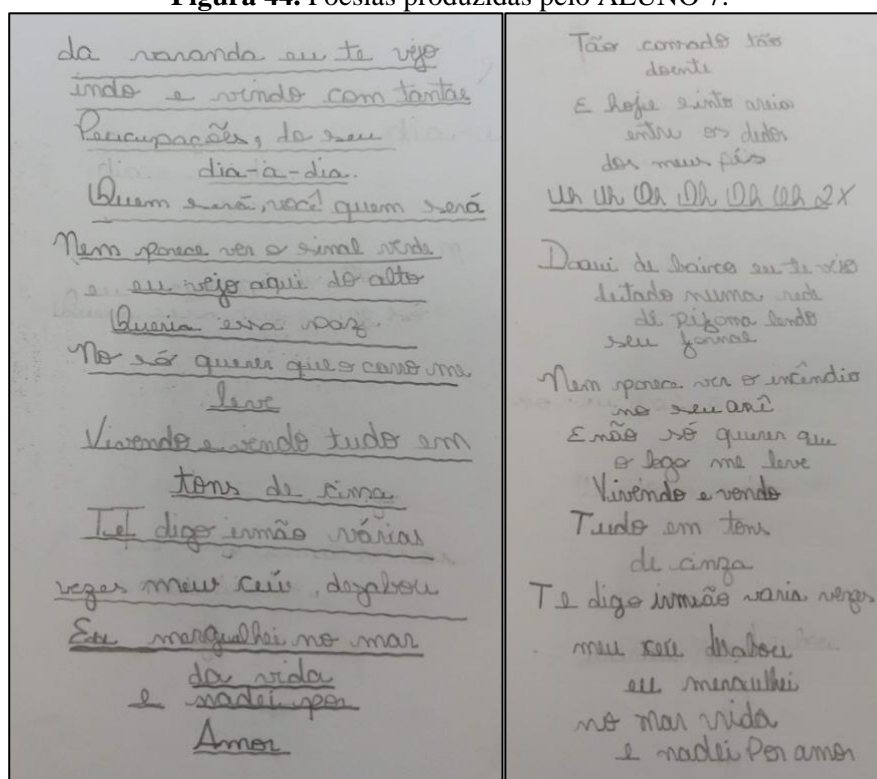 Figura 44. Poesias produzidas pelo ALUNO 7.
da varanda eu te vejo
indo e vindo com tantas
Peucupações, do seu
dia-a-dia.
Quem será, você quem será
Nem parece ver o sinal verde
e eu vejo aqui do alto
Queria essa paz.
No só querer que o carro me
leve
Vivendo e vendo tudo em
tons de cinza
Te digo irmão várias
vezes meu céu, desabou
Eu mergulhei no mar
da vida
e nadei por
Amor
Tão cansado tão
doente
E hoje sinto areia
entre os dedos
dos meus pés
Uh Uh Oh Oh Oh Oh 2X
Daqui de baixo eu te vejo
deitado numa rede
de pijama lendo
seu jornal
Nem parece ver o incêndio
no seu
E não só querer que
o logo me leve
Vivendo e vendo
Tudo em tons
de cinza
Te digo irmão varia vezes
meu céu desabou
eu merculhei
no mar vida
e nadei Por amor